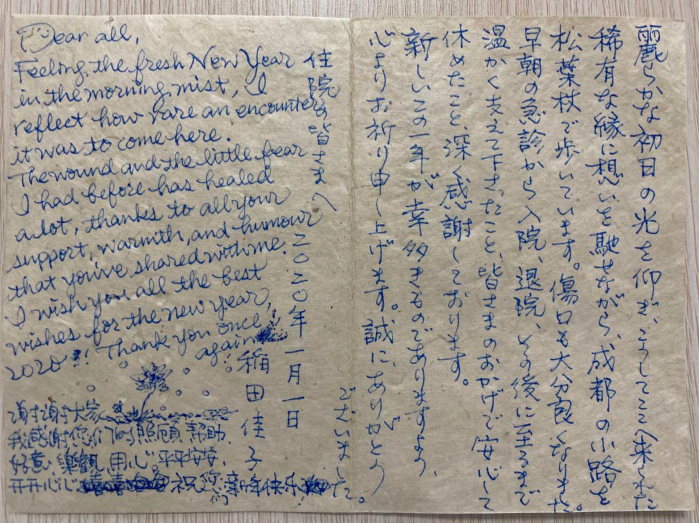 Dear all,
Feeling the fresh New Year
in the morning mist, I
reflect how rare an encounter
it was to come here.
The wound and the little fear
I had before has healed
a lot, thanks to all your
support, warmth, and humour
that you've shared with me.
I wish you all the best
wishes for the new year,
2020!! Thank you once
again
谢谢大家
我感谢您们的照顾 帮助
好意 乐观 用心 平平安安
开开心心 祝您们新年快乐
麗らかな初日の光を仰ぎ、こうしてここへ来れた
稀有な縁に想いを馳せながら、成都の小路を
松葉杖で歩いています。傷口も大分良くなりました。
早朝の急診から入院、退院、その後に至るまで
温かく支えて下さったこと、皆さまのおかげで安心して
休めたこと、深く感謝しております。
新しいこの一年が幸多きものでありますよう、
心よりお祈り申し上げます。誠にありがとう
ございました。
住院の皆さまへ
二〇二〇年一月一日
稲田佳子